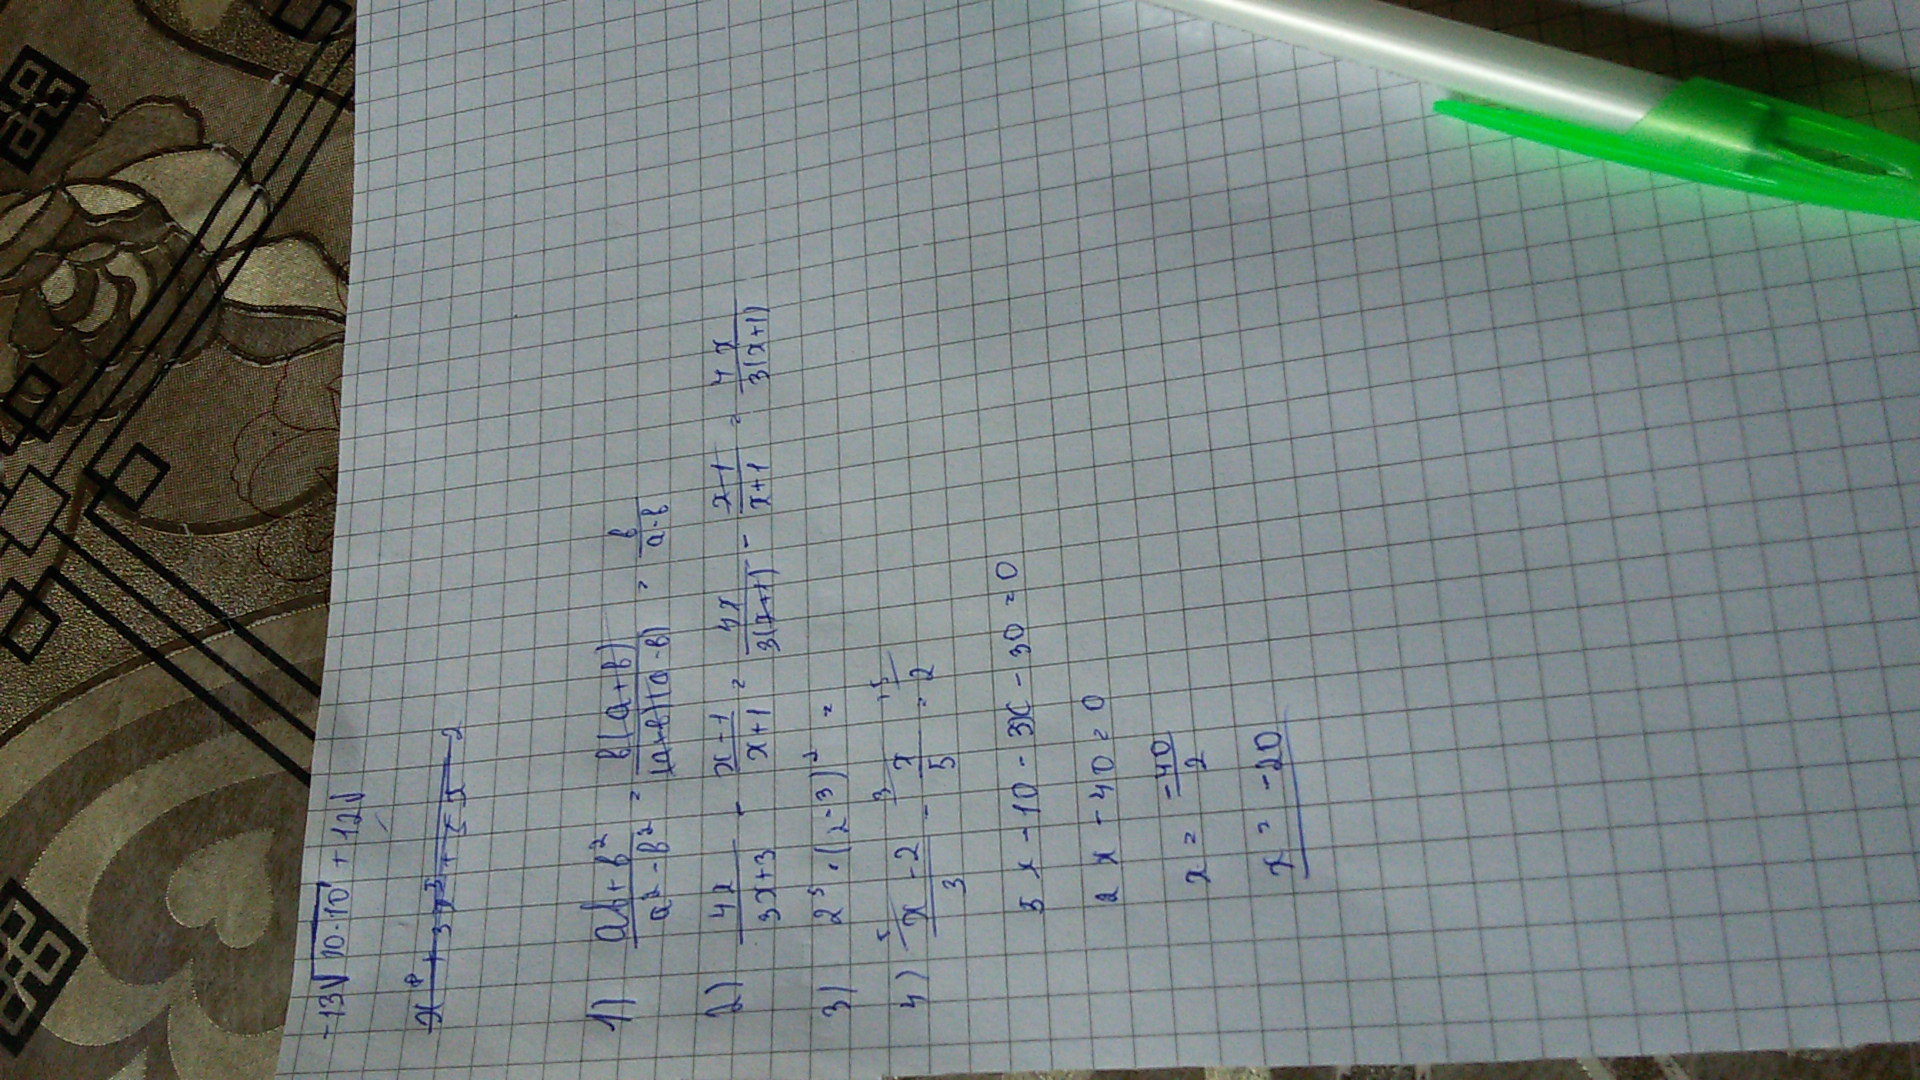 -13√10·10 + 12√
1) ab+b² / a²-b² = b(a+b) / (a+b)(a-b) = b / a-b
2) 4x / 3x+3 - x-1 / x+1 = 4x / 3(x+1) - x-1 / x+1 = 4x / 3(x+1)
3) 2⁵ · (2⁻³)² =
4) ⁵/ x-2 / 3 - ³/ x / 5 = ¹⁵/ 2
5x - 10 - 3x - 30 = 0
2x - 40 = 0
x = -40 / 2
x = -20